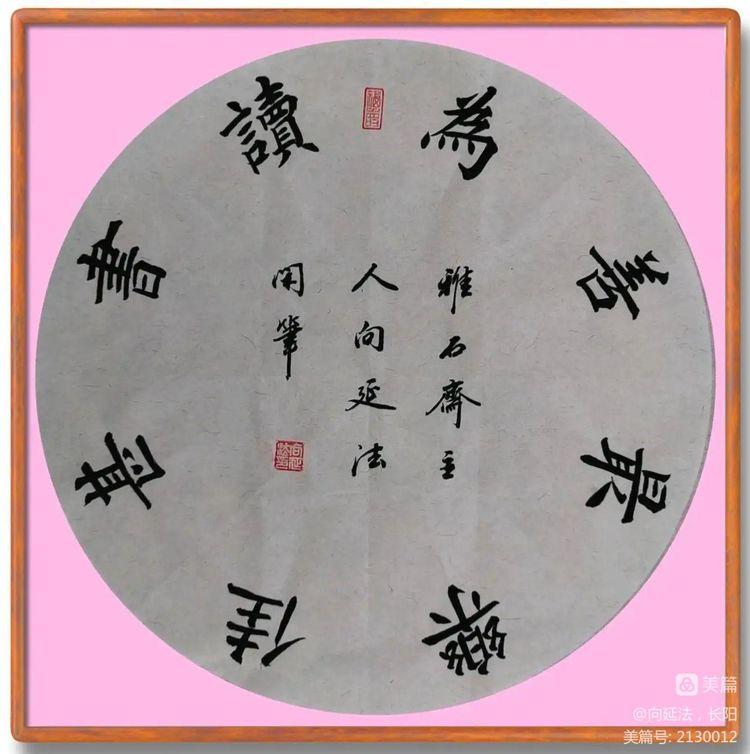 為善最樂
讀書更佳
雅石齋主
人向延法
閑筆
美篇
@向延法，长阳
美篇号: 2130012